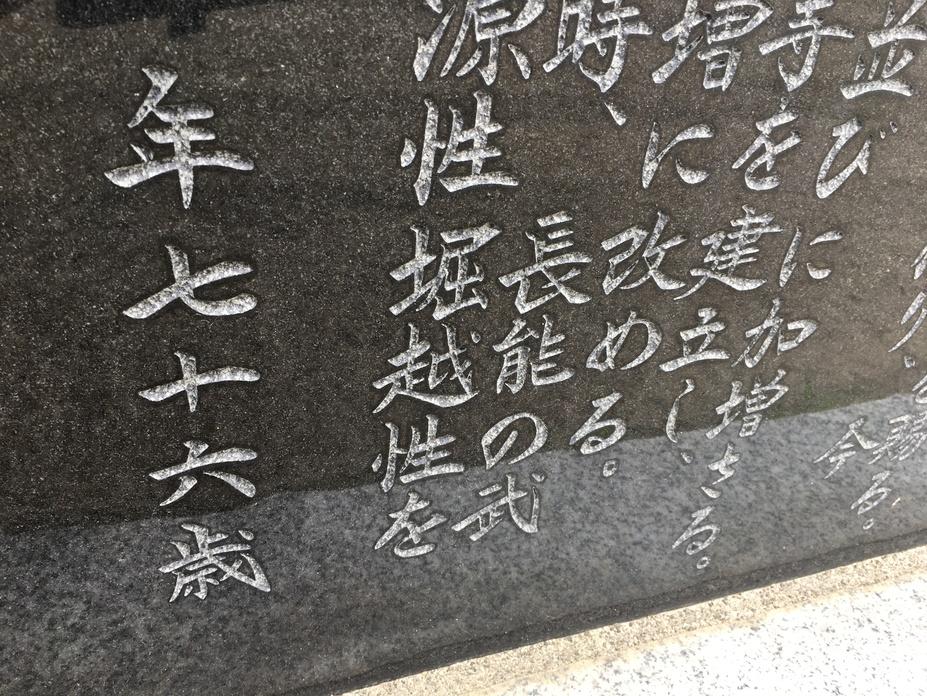 賜る。
今
並びに加増さる。
寺を建立し、
増に改める。
時、長能の武
源性堀越性を
年七十六歳